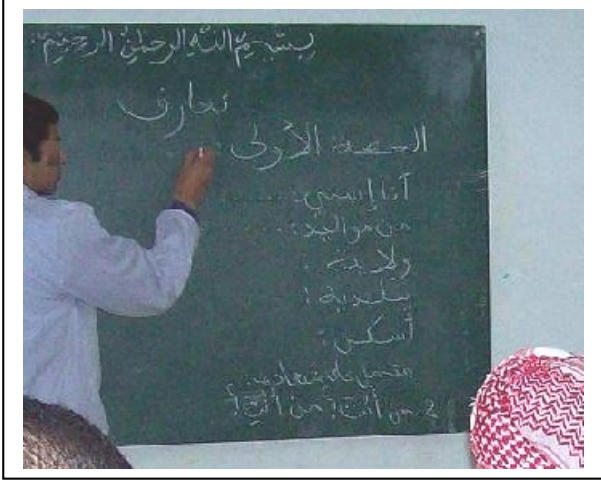 بسم الله الرحمن الرحيم
تعارف
الحصة الأولى
أنا إسمي:
من مواليد:
ولاية:
بلدية:
أسكن:
2. من أنتَ؟ من أنتِ؟